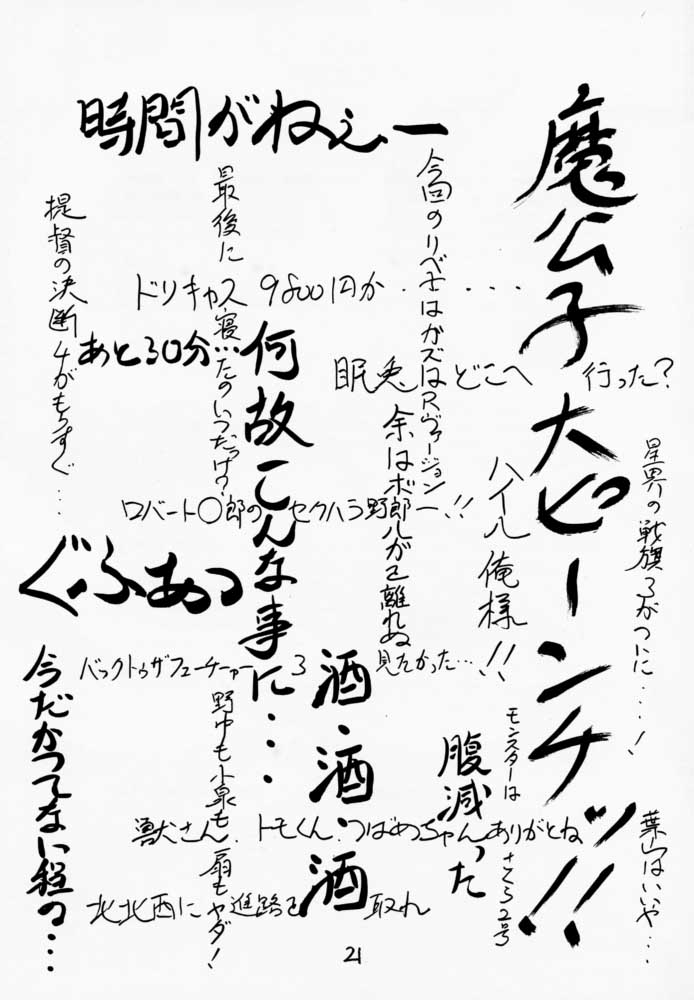 魔公子大ピーンチッ!!
時間がねぇー
今回のリベ士はガズはRヴァージョンー!!
最後に寝たのいつだっけ?
提督の決断4がもうすぐ...
ドリキャス 9800円か.....
あと30分...
何故こんな事に...
眠兎どこへ行った?
余はボ郎ルがご離れぬ
ハイル俺様!!
星界の戦旗3がついに....!
ロバート〇郎のセクハラ野郎
ぐふあっ
バックトゥザフューチャー3見たかった...
酒・酒・酒
今だかつてない程の...
野中も小泉も扇もヤダ!
腹減った
モンスターはさくら2号
葉山はいいや...
獣犬さん、トモくん、つばめちゃんありがとね
北北西に進路を取れ
21